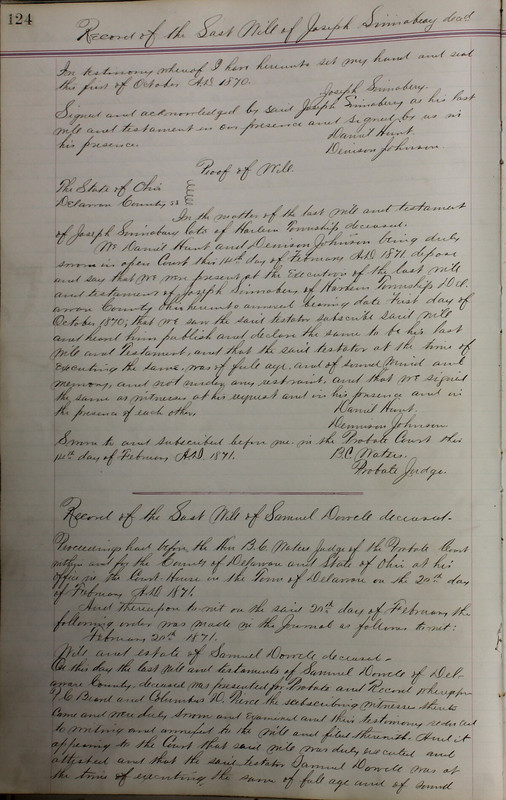 124
Record of the Last Will of Joseph Sinnabery decd
In testimony whereof I have hereunto set my hand and seal
this first of October A.D. 1870.
Joseph Sinnabery.
Signed and acknowledged by said Joseph Sinnabery as his last
will and testament in our presence and signed by us in
his presence.
Daniel Hunt.
Denison Johnson
Proof of Will.
The State of Ohio
Delaware County ss
In the matter of the last will and testament
of Joseph Sinnabery late of Harlem Township deceased.
We Daniel Hunt and Denison Johnson being duly
sworn in open Court this 14th day of February A.D. 1871 depose
and say that we were present at the Execution of the last will
and testament of Joseph Sinnabery of Harlem Township Del-
aware County Ohio hereunto annexed bearing date First day of
October 1870; that we saw the said testator subscribe said will
and heard him publish and declare the same to be his last
Will and Testament, and that the said testator at the time of
Executing the same, was of full age, and of sound mind and
memory, and not under any restraint, and that we signed
the same as witnesses at his request and in his presence and in
the presence of each other.
Daniel Hunt.
Dennison Johnson
Sworn to and subscribed before me in the Probate Court this
14th day of February A.D. 1871.
B.C. Waters.
Probate Judge.
Record of the Last Will of Samuel Dowell deceased.
Proceedings had before the Hon B.C. Waters Judge of the Probate Court
within and for the County of Delaware and State of Ohio at his
office in the Court House in the Town of Delaware on the 20th day
of February A.D. 1871.
And thereupon to wit on the said 20th day of February the
following order was made in the Journal as follows to wit:
February 20th 1871.
Will and estate of Samuel Dowell deceased.
On this day the last will and testament of Samuel Dowell of Del-
aware County, deceased was presented for Probate and Record whereupon
Beard and Columbus W. Pierce the subscribing witnesses thereto
came and were duly sworn and examined and their testimony reduced
to writing and annexed to the will and filed therewith. And it
appearing to the Court that said will was duly executed and
attested and that the said testator Samuel Dowell was at
the time of executing the same of full age and of sound